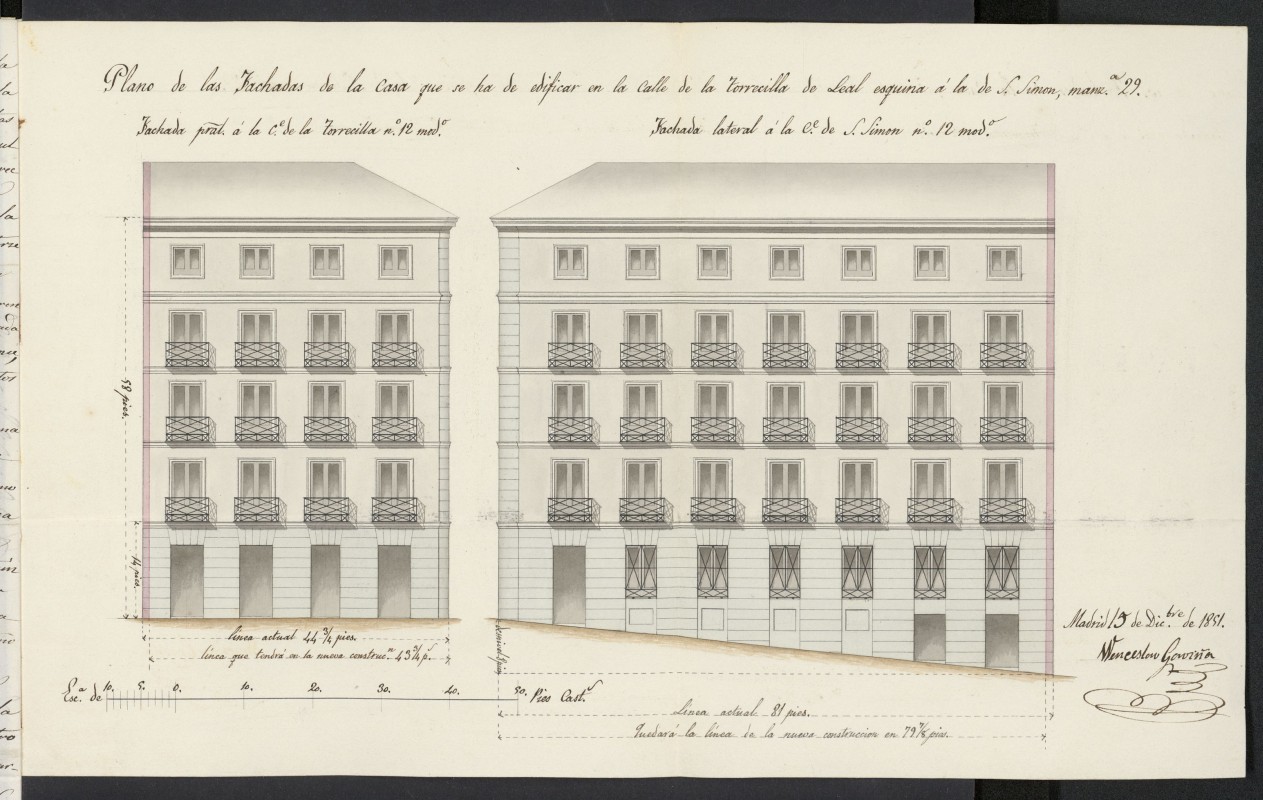 Plano de las Fachadas de la Casa que se ha de edificar en la Calle de la Torrecilla de Leal esquina á la de S. Simon, manz.ª 29.
Fachada pral. á la C.e de la Torrecilla n.o 12 mod.o
Fachada lateral á la C.e de S. Simon n.o 12 mod.o
58 pies.
14 pies.
linea actual 44 3/4 pies.
linea que tendrá en la nueva construc.n 43 3/4 p.s
Esc.ª de 10. 5. 0. 10. 20. 30. 40. 50. Pies Cast.s
Linea actual 81 pies.
Quedará la linea de la nueva construccion en 79 7/8 pies.
Madrid 15 de Dic.bre de 1851.
Wenceslao Gaviña